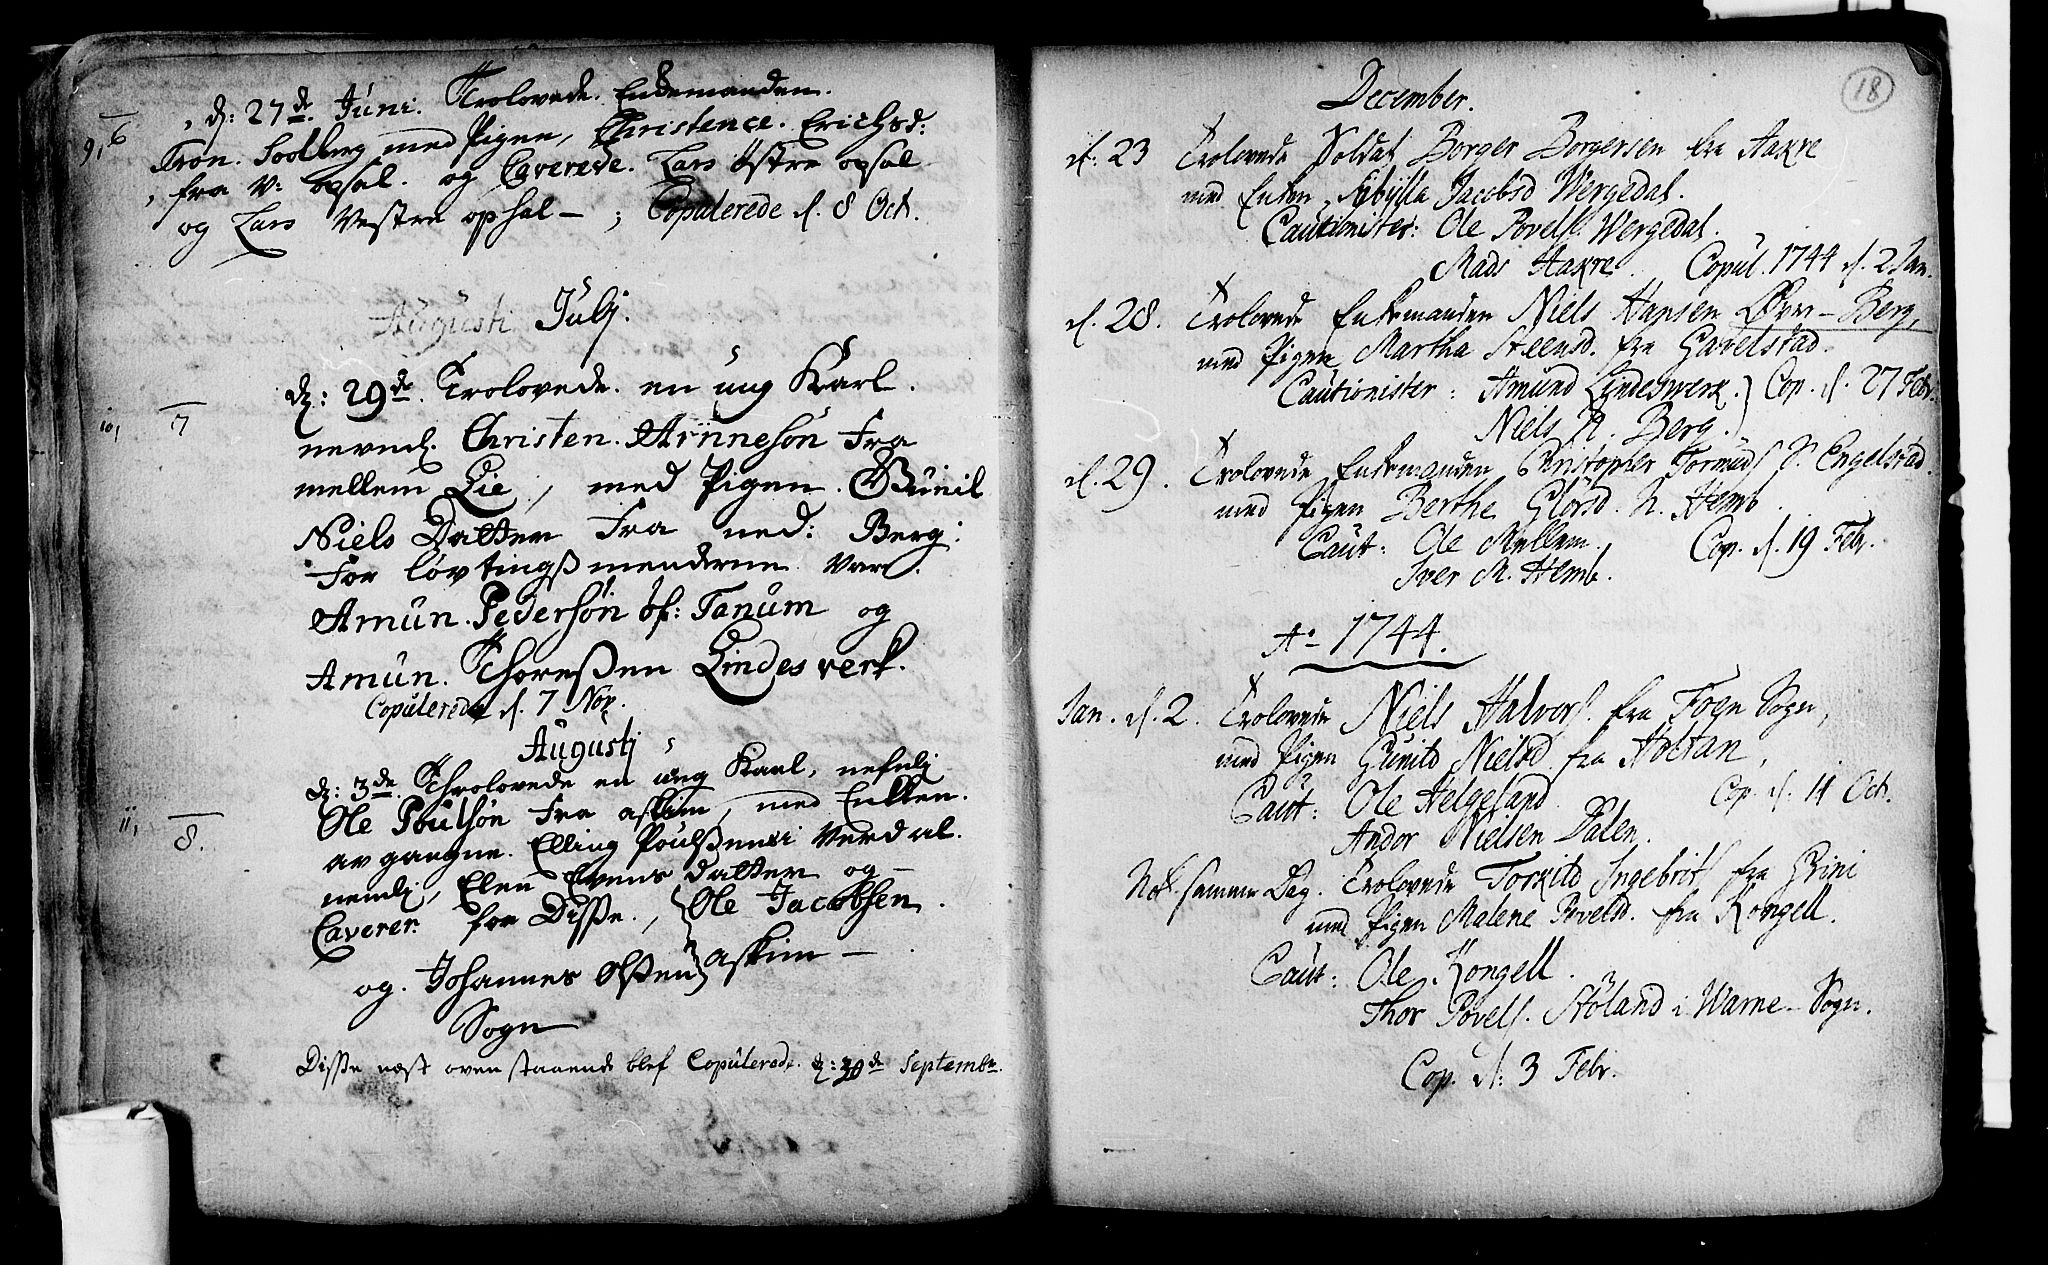 9, 6
d: 27de Juni. Trolovede. Enckemanden.
Tron. Soelberg med Pigen, Christence. Erichsd:
fra V: opsal. og Caverede. Lars Østre opsal
og Lars Vestre opsal – ; Copulerede d. 8 Oct.
Augusti Julj.
10, 7
d: 29de. Trolovede. en ung Karl.
nevnl. Christen. Arnneson Fra
mellem Lie, med Pigen. Gunil
Niels Datter Fra ned: Berg:
For løvtingsmenderne Var.
Amun. Pederson øf: Tanum og
Amun. Thoreßen Lindesverk.
Copulerede d. 7 Nov.
Augustj
11, 8.
d: 3de. Throlovede en ung Karl, nefnlig
Ole Poulson Fra askim, med Enkken.
av gangne. Elling Poulßens i Verdal.
nemlig, Elen Evens Datter og –
Caverer. for Disse., Ole Jacobsen.
og. Johannes Olßen askim –
Sogn
Disse næst oven staaende blef Copulerede. d: 30de Septembr.
18
December.
d. 23 Trolovede Soldat Borger Borgersen fra Haxre
med Enken, Sibylla Jacobsd Wergedal.
Cautionister: Ole Povels. Wergedal.
Mads Haxre. Copul. 1744 d. 2 Jan.
d. 28. Trolovede Enkemanden Niels Hansen Øvre – Berg,
med Pigen Martha Steensd. fra Gavelstad.
Cautionister: Amund Lindeswerk. Cop. d. 27 Febr.
Niels N. Berg.
d. 29. Trolovede Enkemanden Christopher Tormods. S. Engelstad.
med Pigen Berthe Glørsd. N. Hemb.
Caut: Ole Mellem. Cop. d. 19 Febr.
Iver M. Hemb.
Ao 1744.
Jan. d. 2. Trolovede Niels Halvors. fra Foen Sogn,
med Pigen Gunild Nielsd. fra Holtan,
Caut: Ole Helgeland. Cop. d. 11 Oct.
Andor Nielsen Dalen.
Nok samme Dag. Trolovede Torkild Ingebrits. fra Grini
med Pigen Malene Povelsd. fra Kongell.
Caut: Ole Kongell.
Thor Povels. Støland i Warne – Sogn.
Cop. d. 3 Febr.